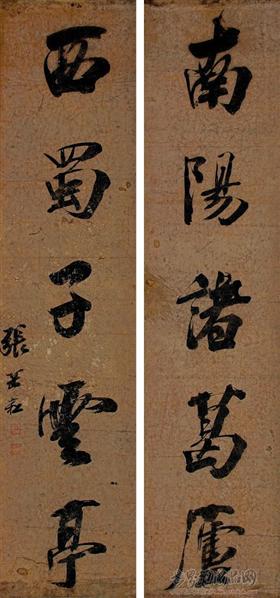 南陽諸葛廬
西蜀子雲亭
張